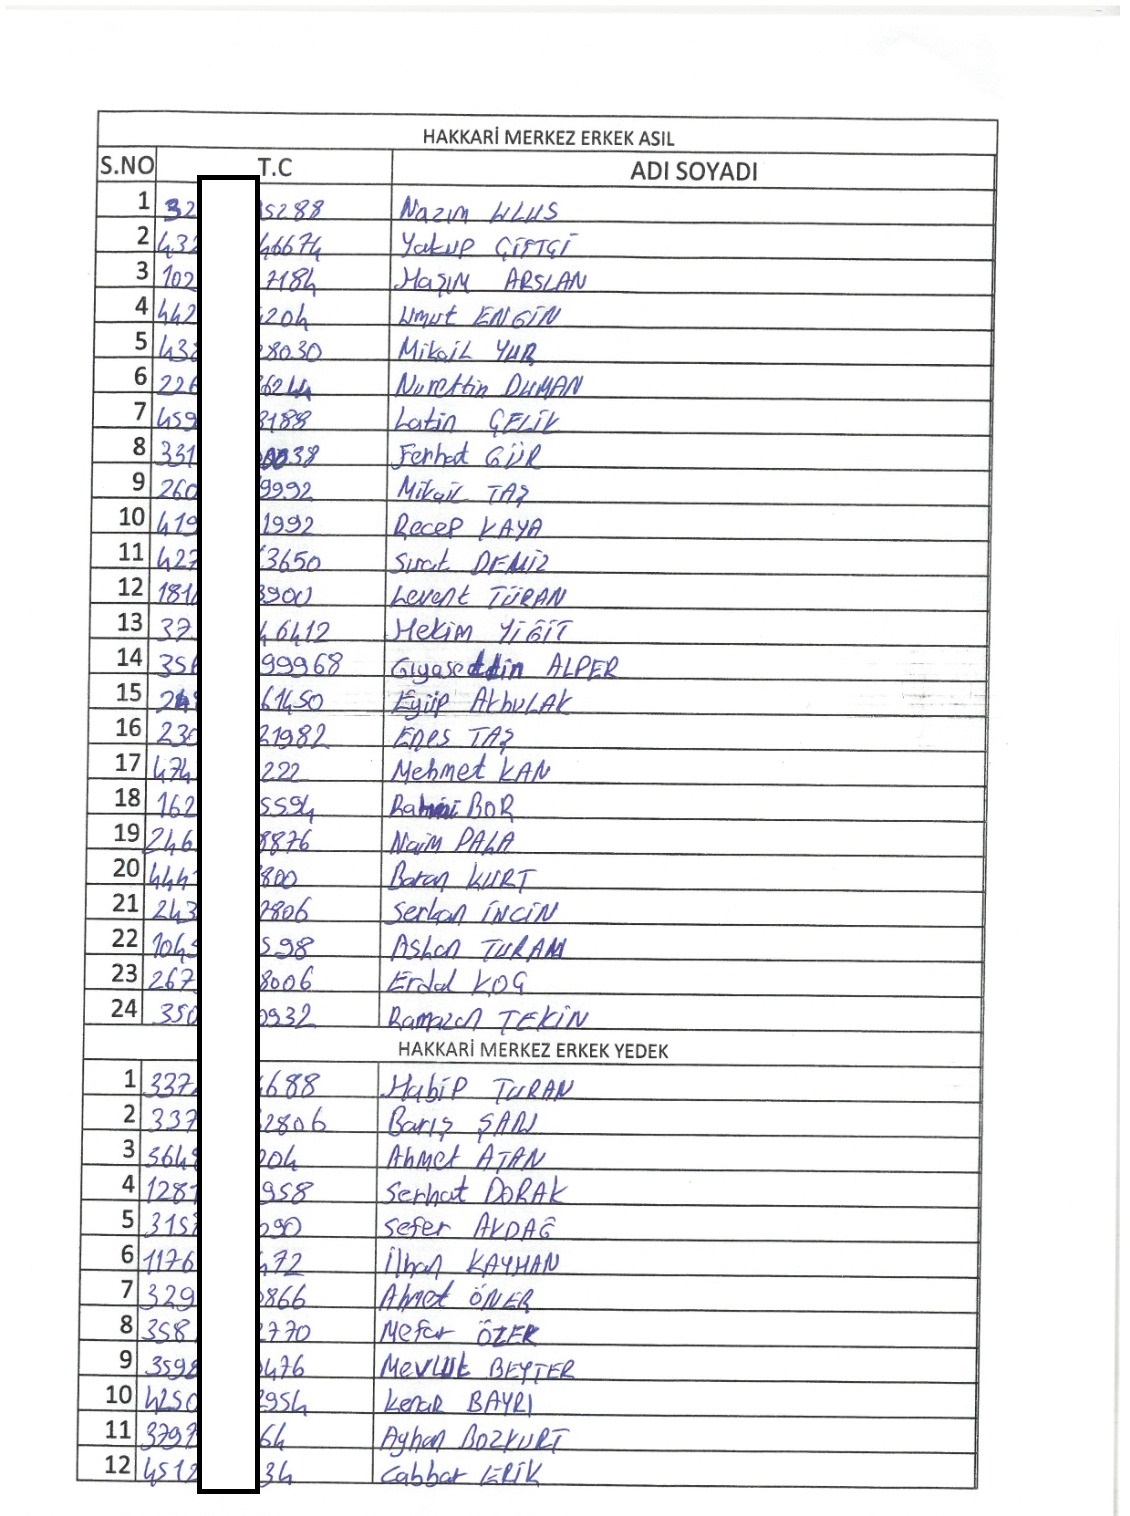 HAKKARİ MERKEZ ERKEK ASIL
S.NO T.C ADI SOYADI
1 32 5288 Nazım ULUS
2 432 46674 Yakup ÇİFTÇİ
3 102 7184 Haşım ARSLAN
4 442 204 Umut ENGİN
5 432 8030 Mikail YUR
6 226 6244 Nurettin DUMAN
7 459 3188 Latin ÇELİK
8 331 0038 Ferhat GÜR
9 260 9992 Mikail TAŞ
10 419 1992 Recep KAYA
11 427 3650 Sırat DEMİZ
12 181 3900 Levent TURAN
13 37 46412 Hekim YİĞİT
14 356 99968 Gıyaseddin ALPER
15 24 61450 Eyüp AkbuLAK
16 230 21982 Enes TAŞ
17 474 222 Mehmet KAN
18 162 5594 Rahmi BOR
19 246 8876 Naim PALA
20 444 800 Baran KURT
21 243 2806 Serkan İNCİN
22 1045 598 Aslan TURAN
23 267 8006 Erdal KOÇ
24 350 0932 Ramazan TEKİN
HAKKARİ MERKEZ ERKEK YEDEK
1 337 688 Habip TURAN
2 337 2806 Barış ŞARI
3 5648 204 Ahmet ATAN
4 1281 958 Serhat DORAK
5 315 090 Sefer AKDAĞ
6 1176 472 İlhan KAYHAN
7 329 0866 Ahmet ÖNER
8 358 2770 ÖZER
9 3598 0476 Mevlüt BEYTER
10 4250 2954 Kenar BAYRI
11 3797 64 Ayhan BOZKURT
12 4512 34 Cabbar ERİK